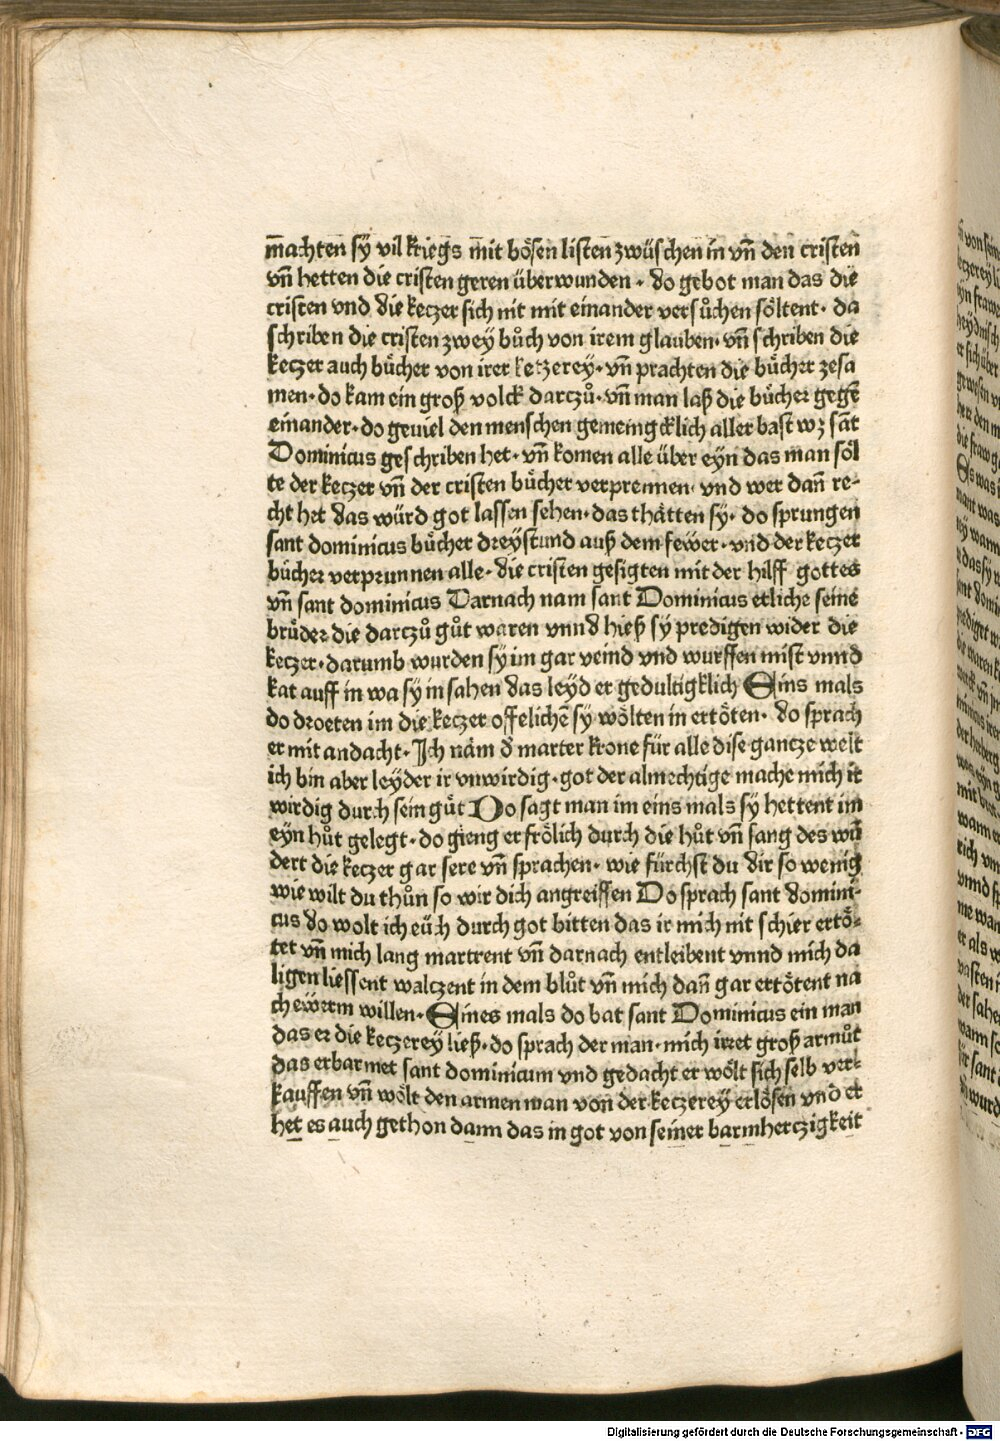 machten sy̋ vil kriegs mit bösen listen zwüschen in vn̄ den cristen
vn̄ hetten die cristen geren überwunden · do gebot man das die
cristen vnd die keczer sich nit mit einander versůchen söltent · da
schriben die cristen zwey bůch von irem glauben · vn̄ schriben die
keczer auch bücher von irer keczerey · vn̄ prachten die bücher zesa
men · do kam ein groß volck darczů · vn̄ man laß die bücher gegē
einander · do geuiel den menschen gemeingcklich aller bast wz sāt
Dominicus geschriben het · vn̄ komen alle über eyn das man söl
te der keczer vn̄ der cristen bücher verprennen · vnd wer dan̄ re-
cht het das würd got lassen sehen · das thätten sy · do sprungen
sant dominicus bücher dreystund auß dem fewer · vnd der keczer
bücher verprunnen alle · die cristen gesigten mit der hilff gottes
vn̄ sant dominicus Darnach nam sant Dominicus etliche seine
brüder die darczů gůt waren vnnd hieß sy predigen wider die
keczer · darumb wurden sy im gar veind vnd wurffen mist vnnd
kat auff in wa sy in sahen das leyd er gedultigklich Eins mals
do droeten im die keczer offelichē sy wölten in ertöten · do sprach
er mit andacht · Ich näm d̄ marter krone für alle dise gancze welt
ich bin aber leyder ir vnwirdig · got der almechtige mache mich ir
wirdig durch sein güt Do sagt man im eins mals sy hettent im
eyn hůt gelegt · do gieng er frölich durch die hůt vn̄ sang des wū
dert die keczer gar sere vn̄ sprachen · wie fürchst du dir so wenig
wie wilt du thůn so wir dich angreiffen Do sprach sant domini-
cus do wolt ich eüch durch got bitten das ir mich nit schier ertö-
tet vn̄ mich lang martrent vn̄ darnach entleibent vnnd mich da
ligen liessent walczent in dem blůt vn̄ mich dan̄ gar ertötent na
ch ewrem willen · Eines mals do bat sant Dominicus ein man
das er die keczerey ließ · do sprach der man · mich irret groß armůt
das erbarmet sant dominicum vnd gedacht er wölt sich selb ver-
kauffen vn̄ wölt den armen man von der keczerey erlösen vnd er
het es auch gethon dann das in got von seiner barmherczigkeit
Digitalisierung gefördert durch die Deutsche Forschungsgemeinschaft - DFG